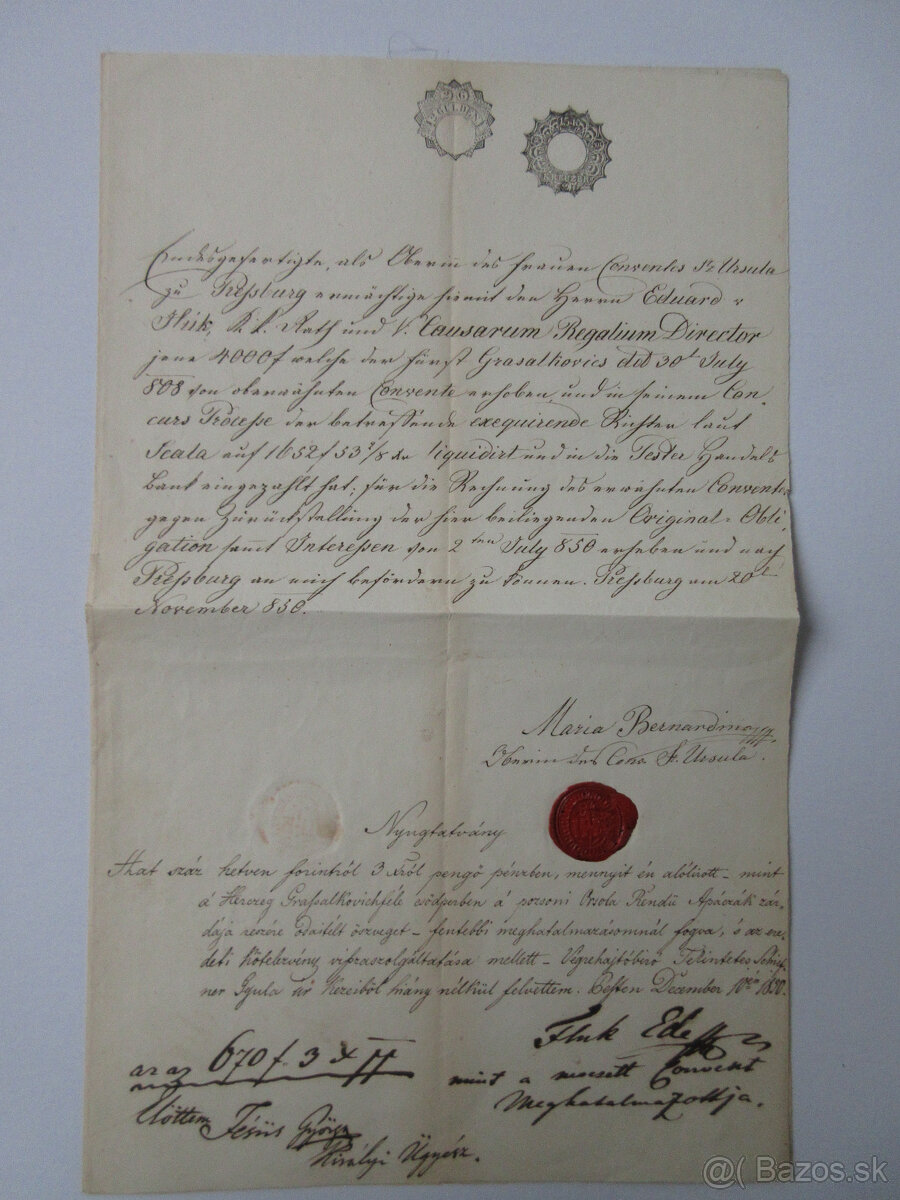 2 G
GULDEN
15
KREUZER
Endesgefertigte, als Oberin des Frauen Conventes St. Ursula
zu Preßburg ermächtige hiemit den Herrn Eduard v
Fluk, k.k. Rath und Causarum Regalium Director
jene 4000 f welche der Fürst Grasalkovics dto 30t July
808 von oberwähnten Convente erhoben und in seinem Con,
curs Proceße der betreffende exequirende Richter laut
Scala auf 1652 f 53 2/8 kr liquidirt und in die Pester Handels
bank eingezahlt hat; für die Rechnung des erwähnten Convents
gegen Zurückstellung der hier beiliegenden Original-Obli,
gation sammt Interessen von 2ten July 850 erheben und nach
Preßburg an mich befördern zu können. Preßburg am 20t
November 850.
Maria Bernardina
Oberin des Conv. St. Ursula.
Nyugtatvány
Hat száz hetven forintról 3 xról pengő pénzben, mennyit én alólirott - mint
á Herczeg Graßalkovichféle csődperben á pozsoni Orsola Rendü Apáczák zár-
dája részére odaitélt öszveget - fentebbi meghatalmazásomnál fogva, s az ere-
deti kötelezvény viszszaszolgáltatása mellett - Végrehajtóbiró Tekintetes
ner Gyula úr kezeiből hiány nélkül felvettem. Pesten December 10én 1850.
az az 670 f. 3 x
Fluk Ede
mint a nevezett Convent
Meghatalmazottja.
Előttem
György
Királyi Ügyész.
@( Bazos.sk